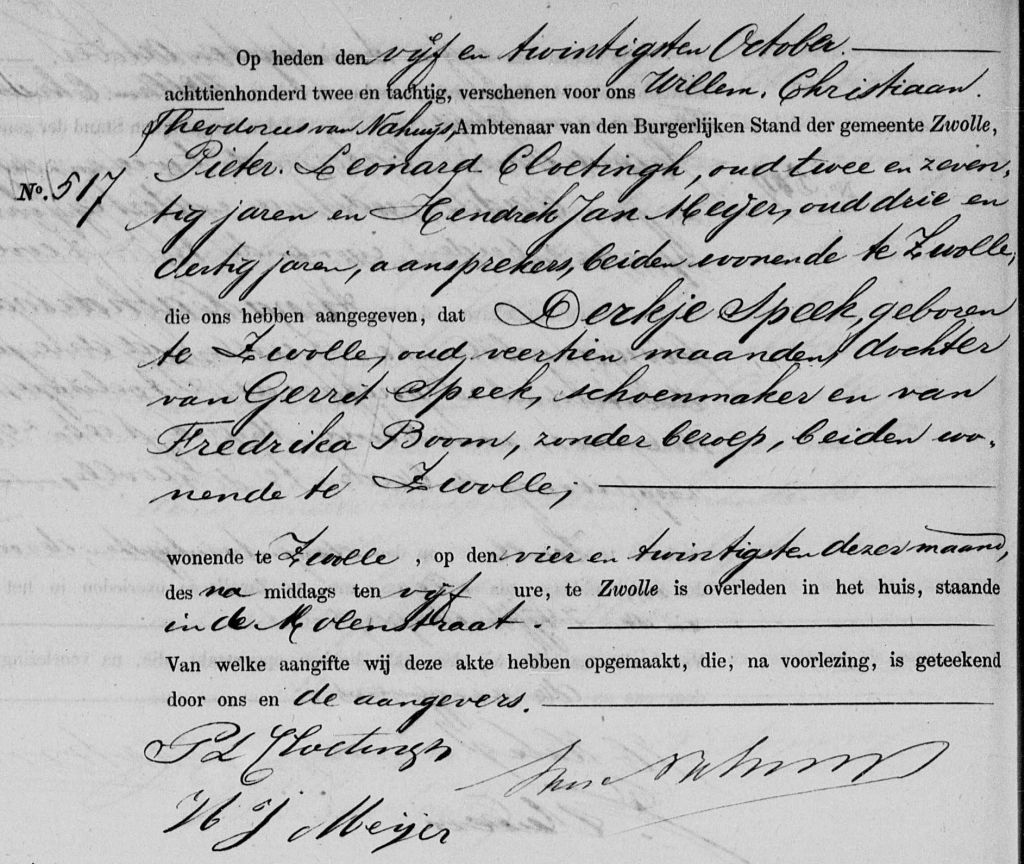 Op heden den vijf en twintigsten October.
achttienhonderd twee en tachtig, verschenen voor ons Willem. Christiaan.
Theodorus van Nahuijs, Ambtenaar van den Burgerlijken Stand der gemeente Zwolle,
Pieter. Leonard Cloetingh, oud twee en zeven-
No. 517
tig jaren en Hendrik Jan Meijer, oud drie en
dertig jaren, aansprekers, beiden wonende te Zwolle,
die ons hebben aangegeven, dat Derkje Speek, geboren
te Zwolle, oud, veertien maanden, dochter
van Gerrit Speek, schoenmaker en van
Fredrika Boom, zonder beroep, beiden wo-
nende te Zwolle;
wonende te Zwolle, op den vier en twintigsten dezer maand,
des na middags ten vijf ure, te Zwolle is overleden in het huis, staande
in de Molenstraat.
Van welke aangifte wij deze akte hebben opgemaakt, die, na voorlezing, is geteekend
door ons en de aangevers.
P L Cloetingh
H J Meijer